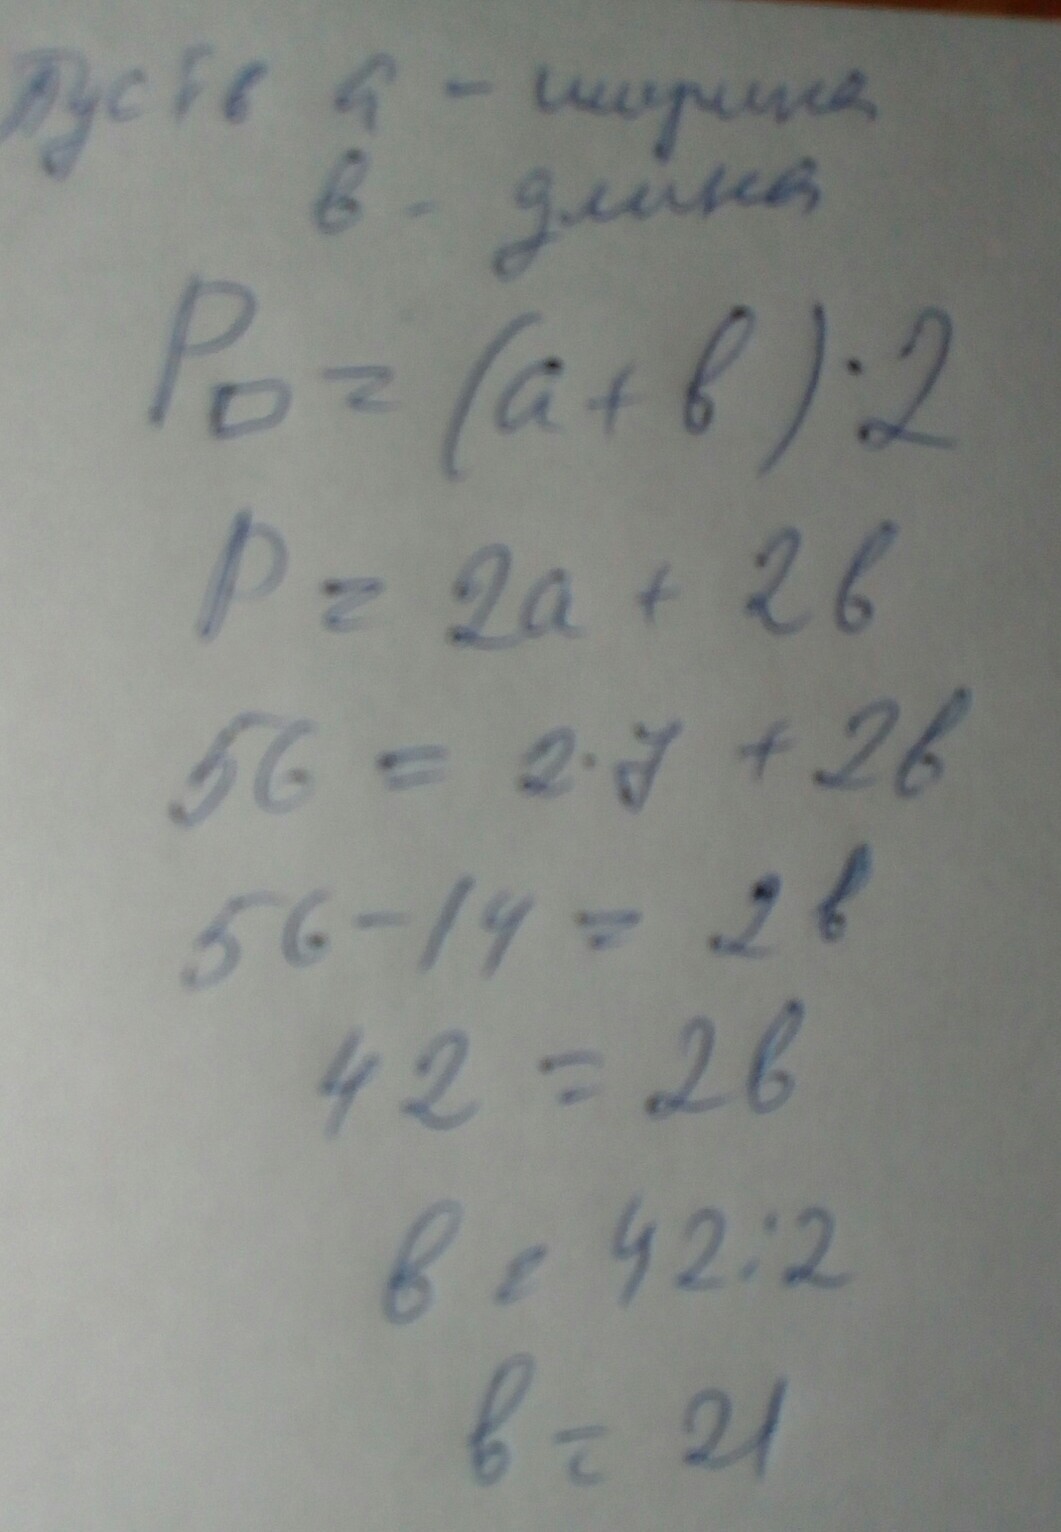 Пусть а - ширина
в - длина
P▭ = (а + в) · 2
P = 2а + 2в
56 = 2·7 + 2в
56 - 14 = 2в
42 = 2в
в = 42:2
в = 21